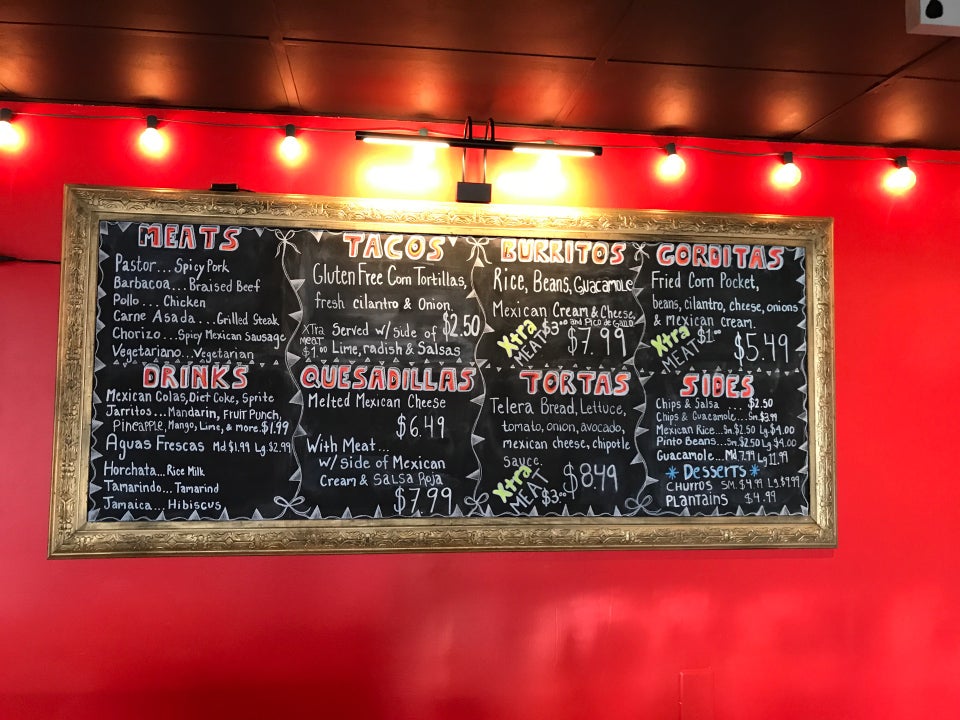 MEATS
Pastor... Spicy Pork
Barbacoa...Braised Beef
Pollo... Chicken
Carne Asada...Grilled Steak
Chorizo...Spicy Mexican Sausage
Vegetariano...Vegetarian
TACOS
Gluten Free Corn Tortillas,
fresh cilantro & Onion
Served w/side of $2.50
Lime, radish & Salsas
xtra
meat
$1.00
BURRITOS
Rice, Beans, Guacamole
Mexican Cream & Cheese,
and Pico de Gallo
Xtra
MEAT $3.00
$7.99
GORDITAS
Fried Corn Pocket,
beans, cilantro, cheese, onions
& mexican cream.
Xtra
MEAT $1.00
$5.49
DRINKS
Mexican Colas, Diet Coke, Sprite
Jarritos...Mandarin, Fruit Punch,
Pineapple, Mango, Lime, & more $1.99
Aguas Frescas Md $1.99 Lg $2.99
Horchata...Rice Milk
Tamarindo...Tamarind
Jamaica...Hibiscus
QUESADILLAS
Melted Mexican Cheese
$6.49
With Meat...
w/side of Mexican
Cream & Salsa Roja
$7.99
TORTAS
Telera Bread, Lettuce,
tomato, onion, avocado,
mexican cheese, chipotle
sauce.
Xtra
MEAT $3.00
$8.49
SIDES
Chips & Salsa ... $2.50
Chips & Guacamole...Sm $3.99
Mexican Rice...Sm $2.50 Lg $4.00
Pinto Beans...Sm $2.50 Lg $4.00
Guacamole...Md 7.99 Lg 11.99
*Desserts*
Churros Sm. $4.99 Lg $7.99
Plantains $4.99